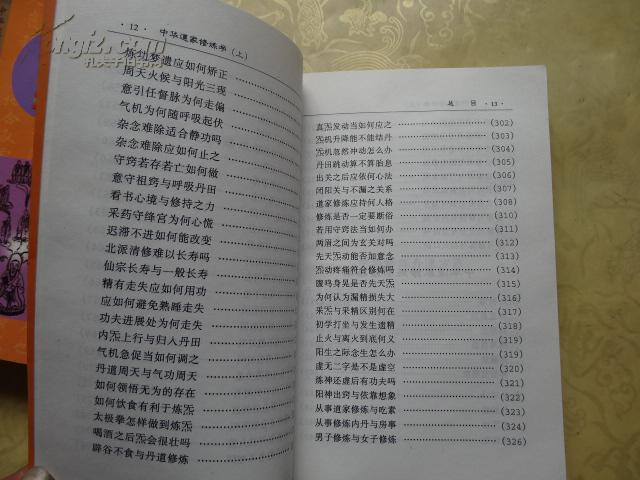 ·12· 中华道家修炼学（上）
炼剑梦遗应如何矫正
周天火候与阳光三现
意引任督脉为何走偏
气机为何随呼吸起伏
杂念难除适合静功吗
杂念难除应如何止之
守窍若存若亡如何做
意守祖窍与呼吸丹田
看书心境与修持之力
采药守绛宫为何心慌
迟滞不进如何能改变
北派清修难以长寿吗
仙宗长寿与一般长寿
精有走失应如何用功
应如何避免熟睡走失
功夫进展处为何走失
内炁上行与归入丹田
气机急促当如何调之
丹道周天与气功周天
如何领悟无为的存在
如何饮食有利于炼炁
太极拳怎样做到炼炁
喝酒之后炁会很壮吗
辟谷不食与丹道修炼
总 目 ·13·
真炁发动当如何应之 (302)
炁机升降能不能结丹 (303)
炁机忽然冲动怎么办 (304)
丹田跳动算不算胎息 (305)
出关之后应依何心法 (306)
闭阳关与不漏之关系 (307)
道家修炼应持何人格 (308)
修炼是否一定要断俗 (310)
若用守窍法当如何办 (311)
两眉之间为玄关对吗 (312)
先天炁动能否如意念 (313)
炁动疼痛符合修炼吗 (314)
腹鸣身晃是否先天炁 (315)
为何认为漏精损失大 (316)
采炁与采精区别何在 (317)
初学打坐与发生遗精 (318)
止火与离火到底何义 (319)
阳生之际念生怎么办 (320)
虚无二字是不是虚空 (321)
炼神还虚后有功夫吗 (322)
阳神出窍与依靠想象 (323)
从事道家修炼与吃素 (324)
从事修炼内丹与房事 (325)
男子修炼与女子修炼 (326)